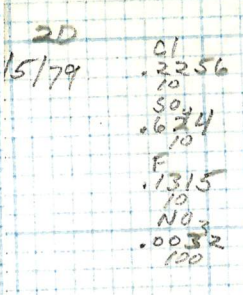 2D
Cl
5/79
.2256
10
SO4
.624
10
F
.1315
10
NO3
.0032
100